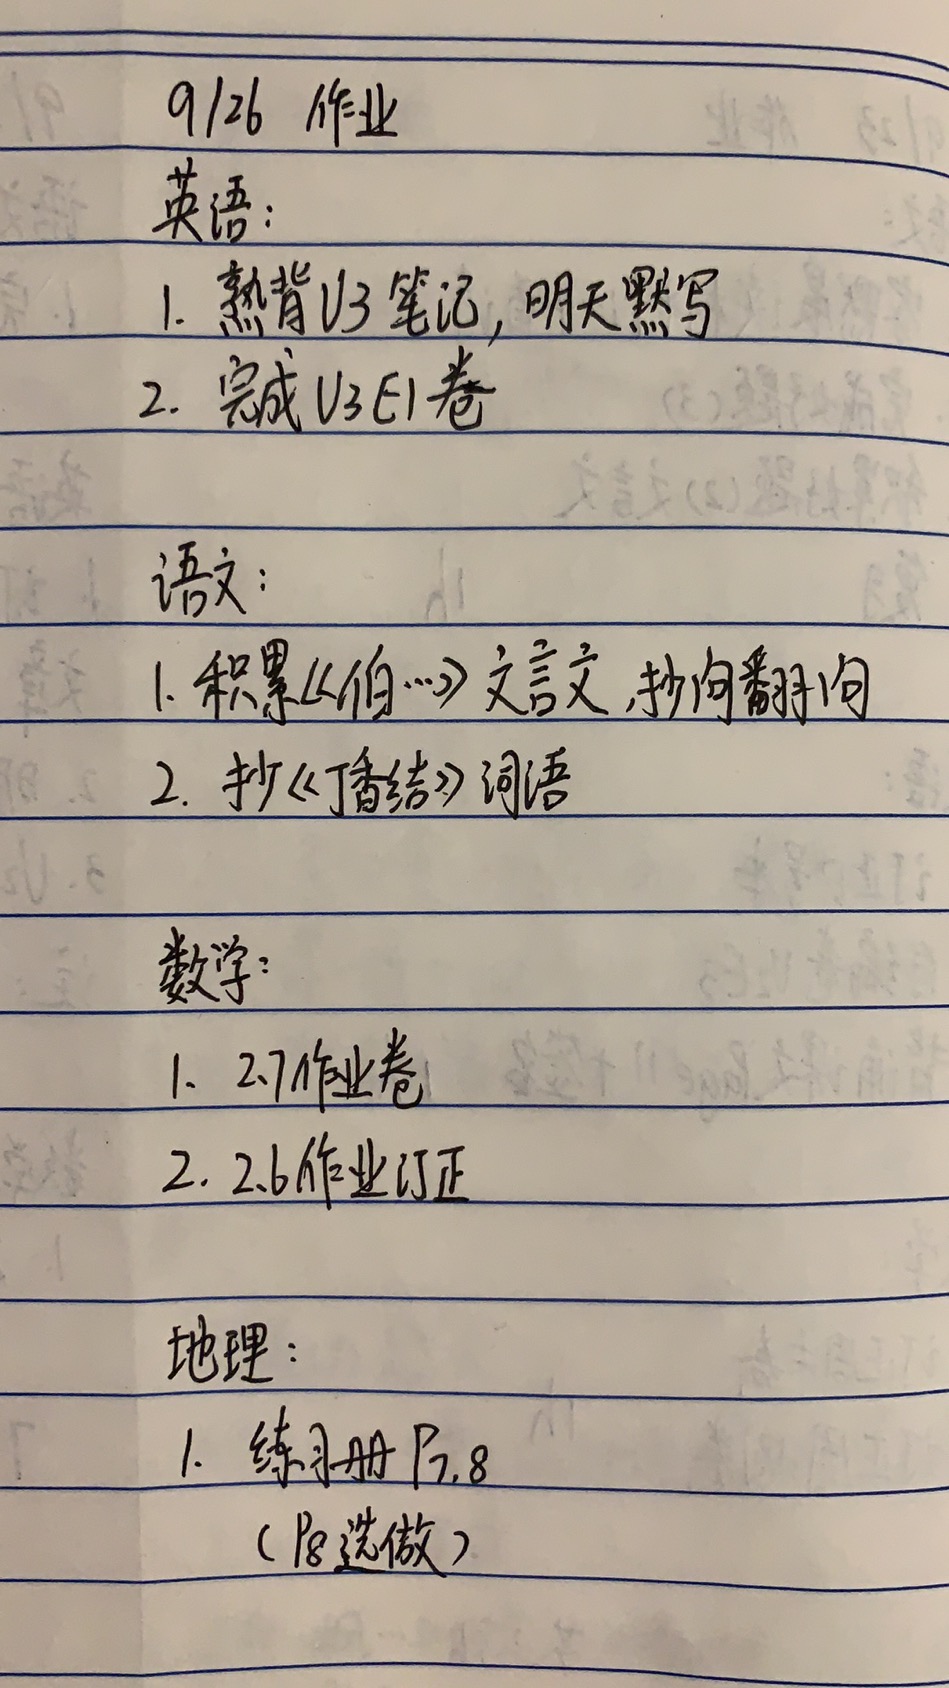 9/26 作业
英语：
1. 熟背U3笔记，明天默写
2. 完成U3E1卷
语文：
1. 积累《伯…》文言文，抄词翻词
2. 抄《丁香结》词语
数学：
1. 2.7作业卷
2. 2.6作业订正
地理：
1. 练习册 P7.8
（P8选做）